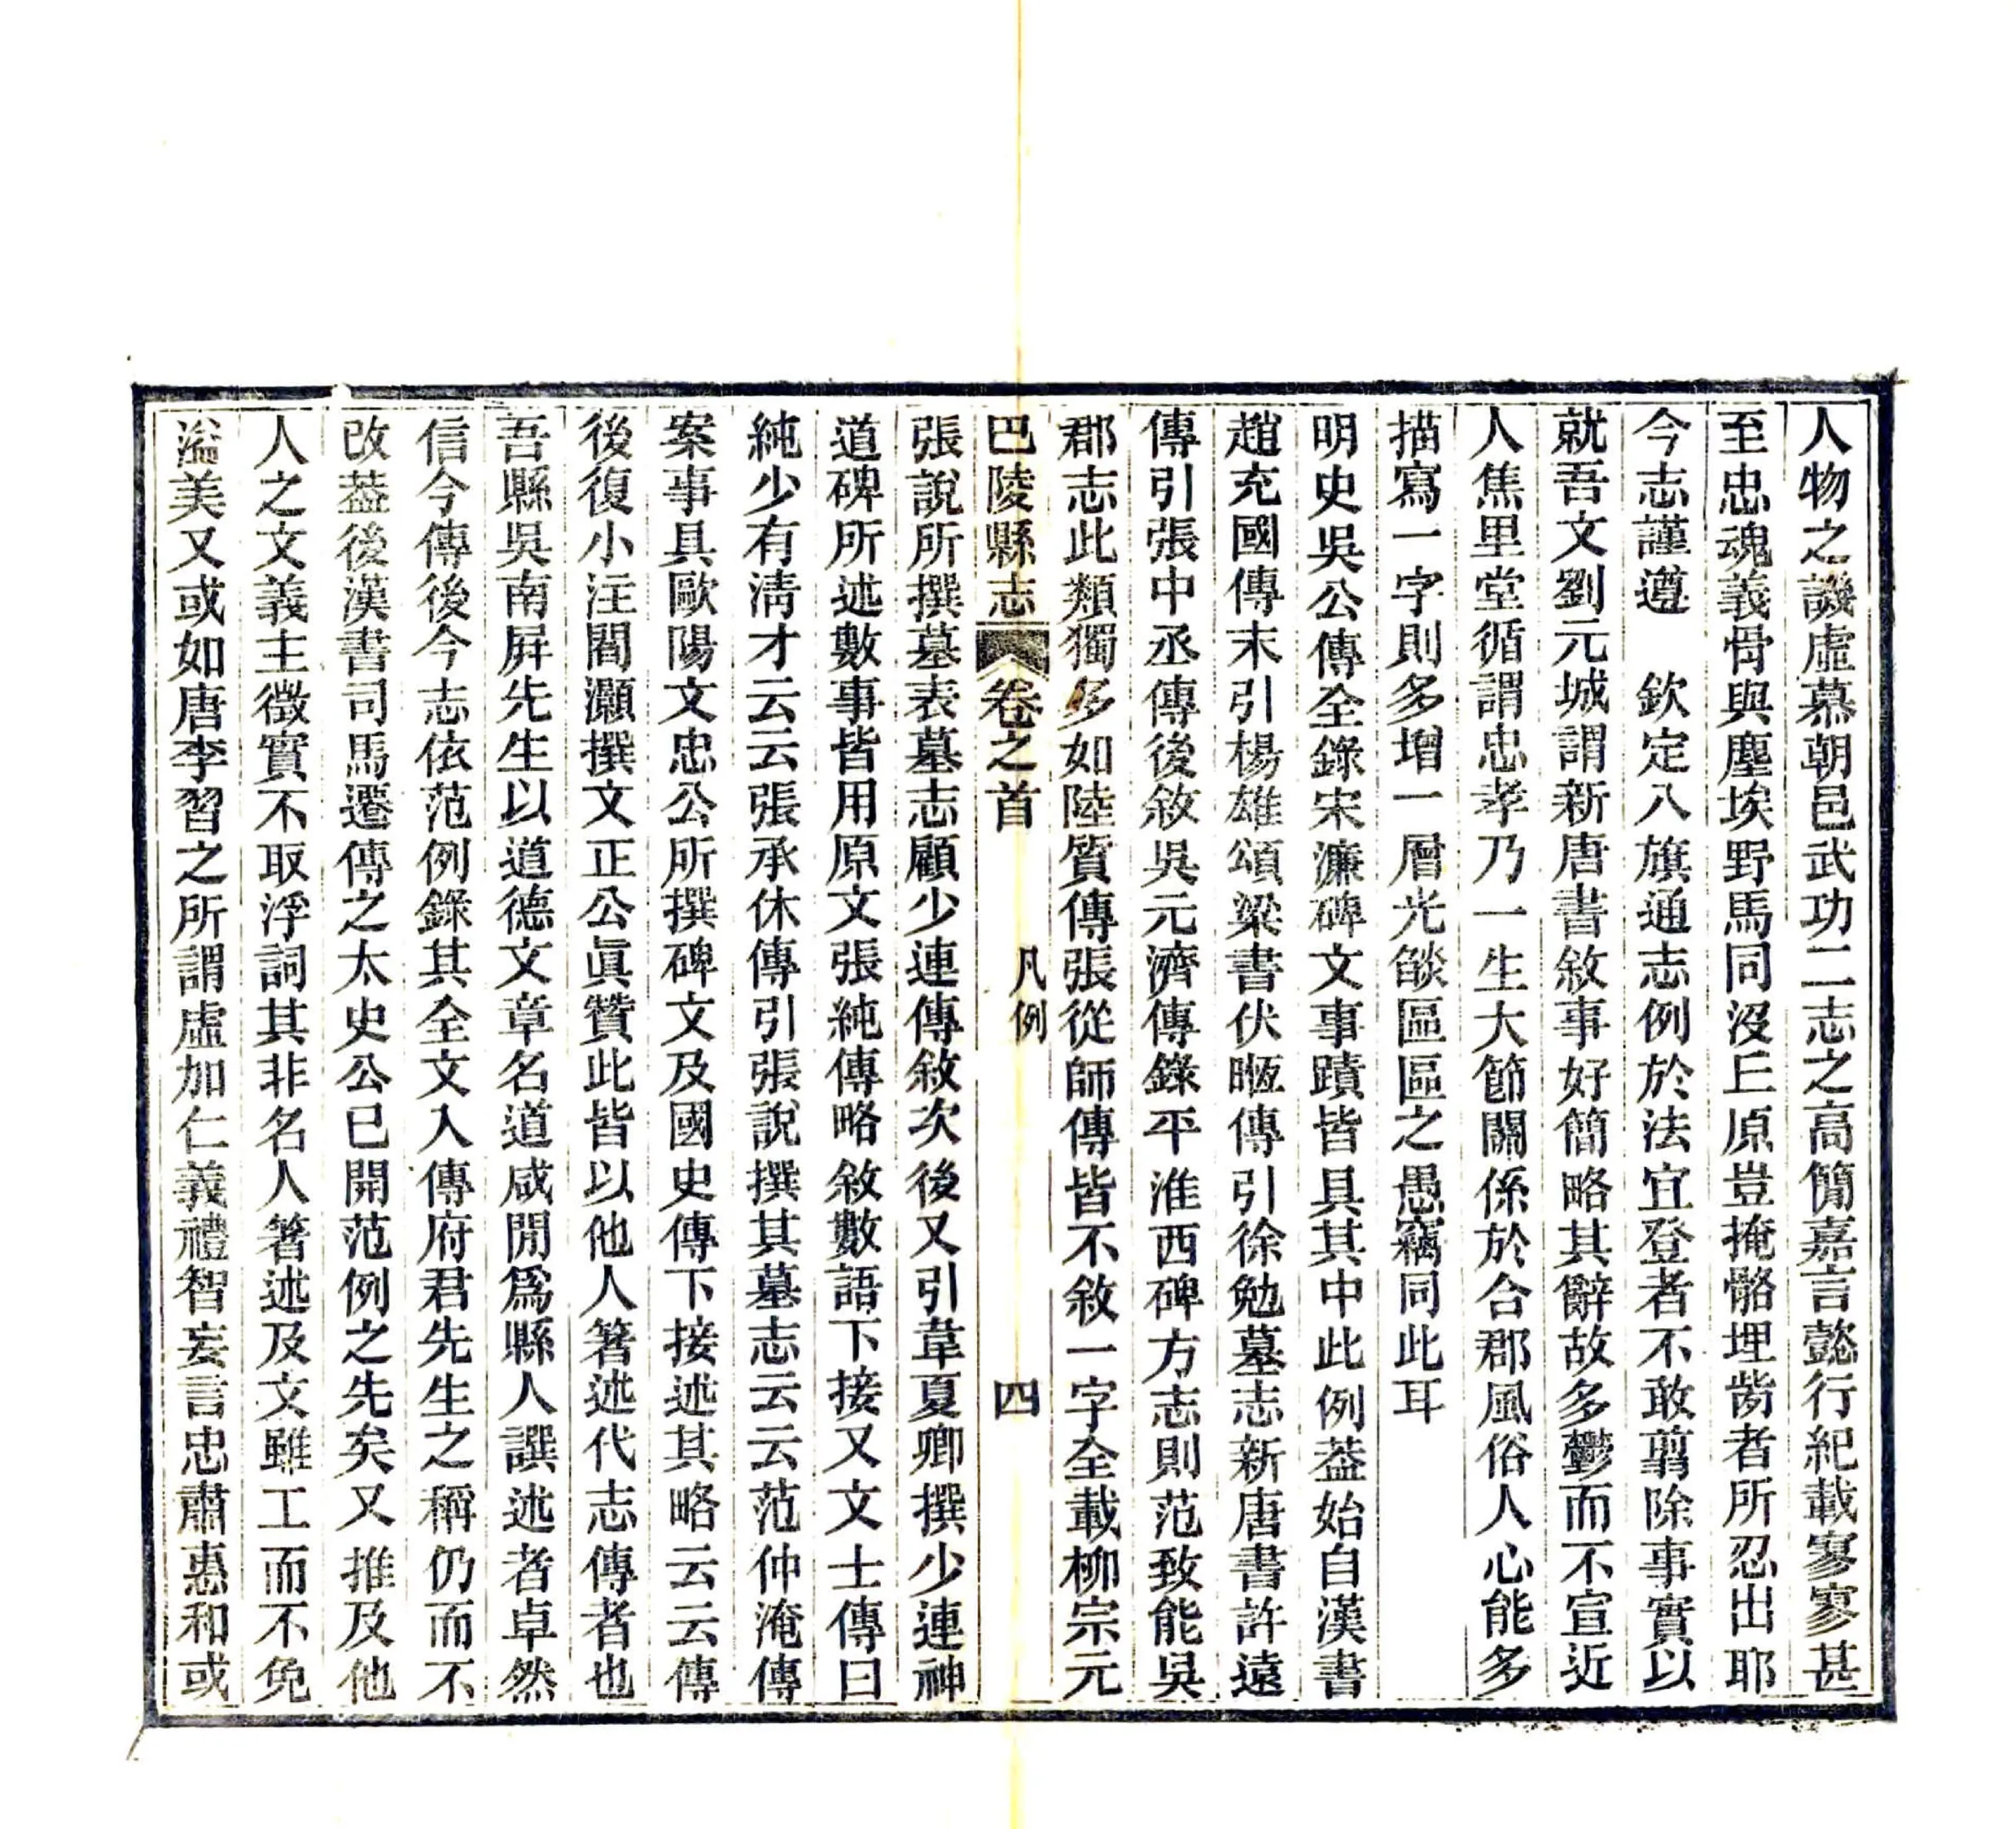 人物之譏虛慕朝邑武功二志之高簡嘉言懿行紀載寥寥甚
至忠魂義骨與塵埃野馬同沒丘原豈掩骼埋胔者所忍出耶
今志謹遵　欽定八旗通志例於法宜登者不敢剪除事實以
就吾文劉元城謂新唐書敘事好簡略其辭故多鬱而不宣近
人焦里堂循謂忠孝乃一生大節關係於合郡風俗人心能多
描寫一字則多增一層光燄區區之愚竊同此耳
明史吳公傳全錄宋濂碑文事蹟皆具其中此例葢始自漢書
趙充國傳末引楊雄頌梁書伏暅傳引徐勉墓志新唐書許遠
傳引張中丞傳後敘吳元濟傳錄平淮西碑方志則范致能吳
郡志此類獨多如陸質傳張從師傳皆不敘一字全載柳宗元
巴陵縣志　卷之首　凡例　四
張說所撰墓表墓志顧少連傳敘次後又引韋夏卿撰少連神
道碑所述數事皆用原文張純傳略敘數語下接又文士傳曰
純少有清才云云張承休傳引張說撰其墓志云云范仲淹傳
案事具歐陽文忠公所撰碑文及國史傳下接述其略云云傳
後復小注閻灝撰文正公眞贊此皆以他人箸述代志傳者也
吾縣吳南屏先生以道德文章名道咸閒爲縣人譔述者卓然
信今傳後今志依范例錄其全文入傳府君先生之稱仍而不
改葢後漢書司馬遷傳之太史公已開范例之先矣又推及他
人之文義主徵實不取浮詞其非名人箸述及文雖工而不免
溢美又或如唐李習之所謂虛加仁義禮智妄言忠肅惠和或